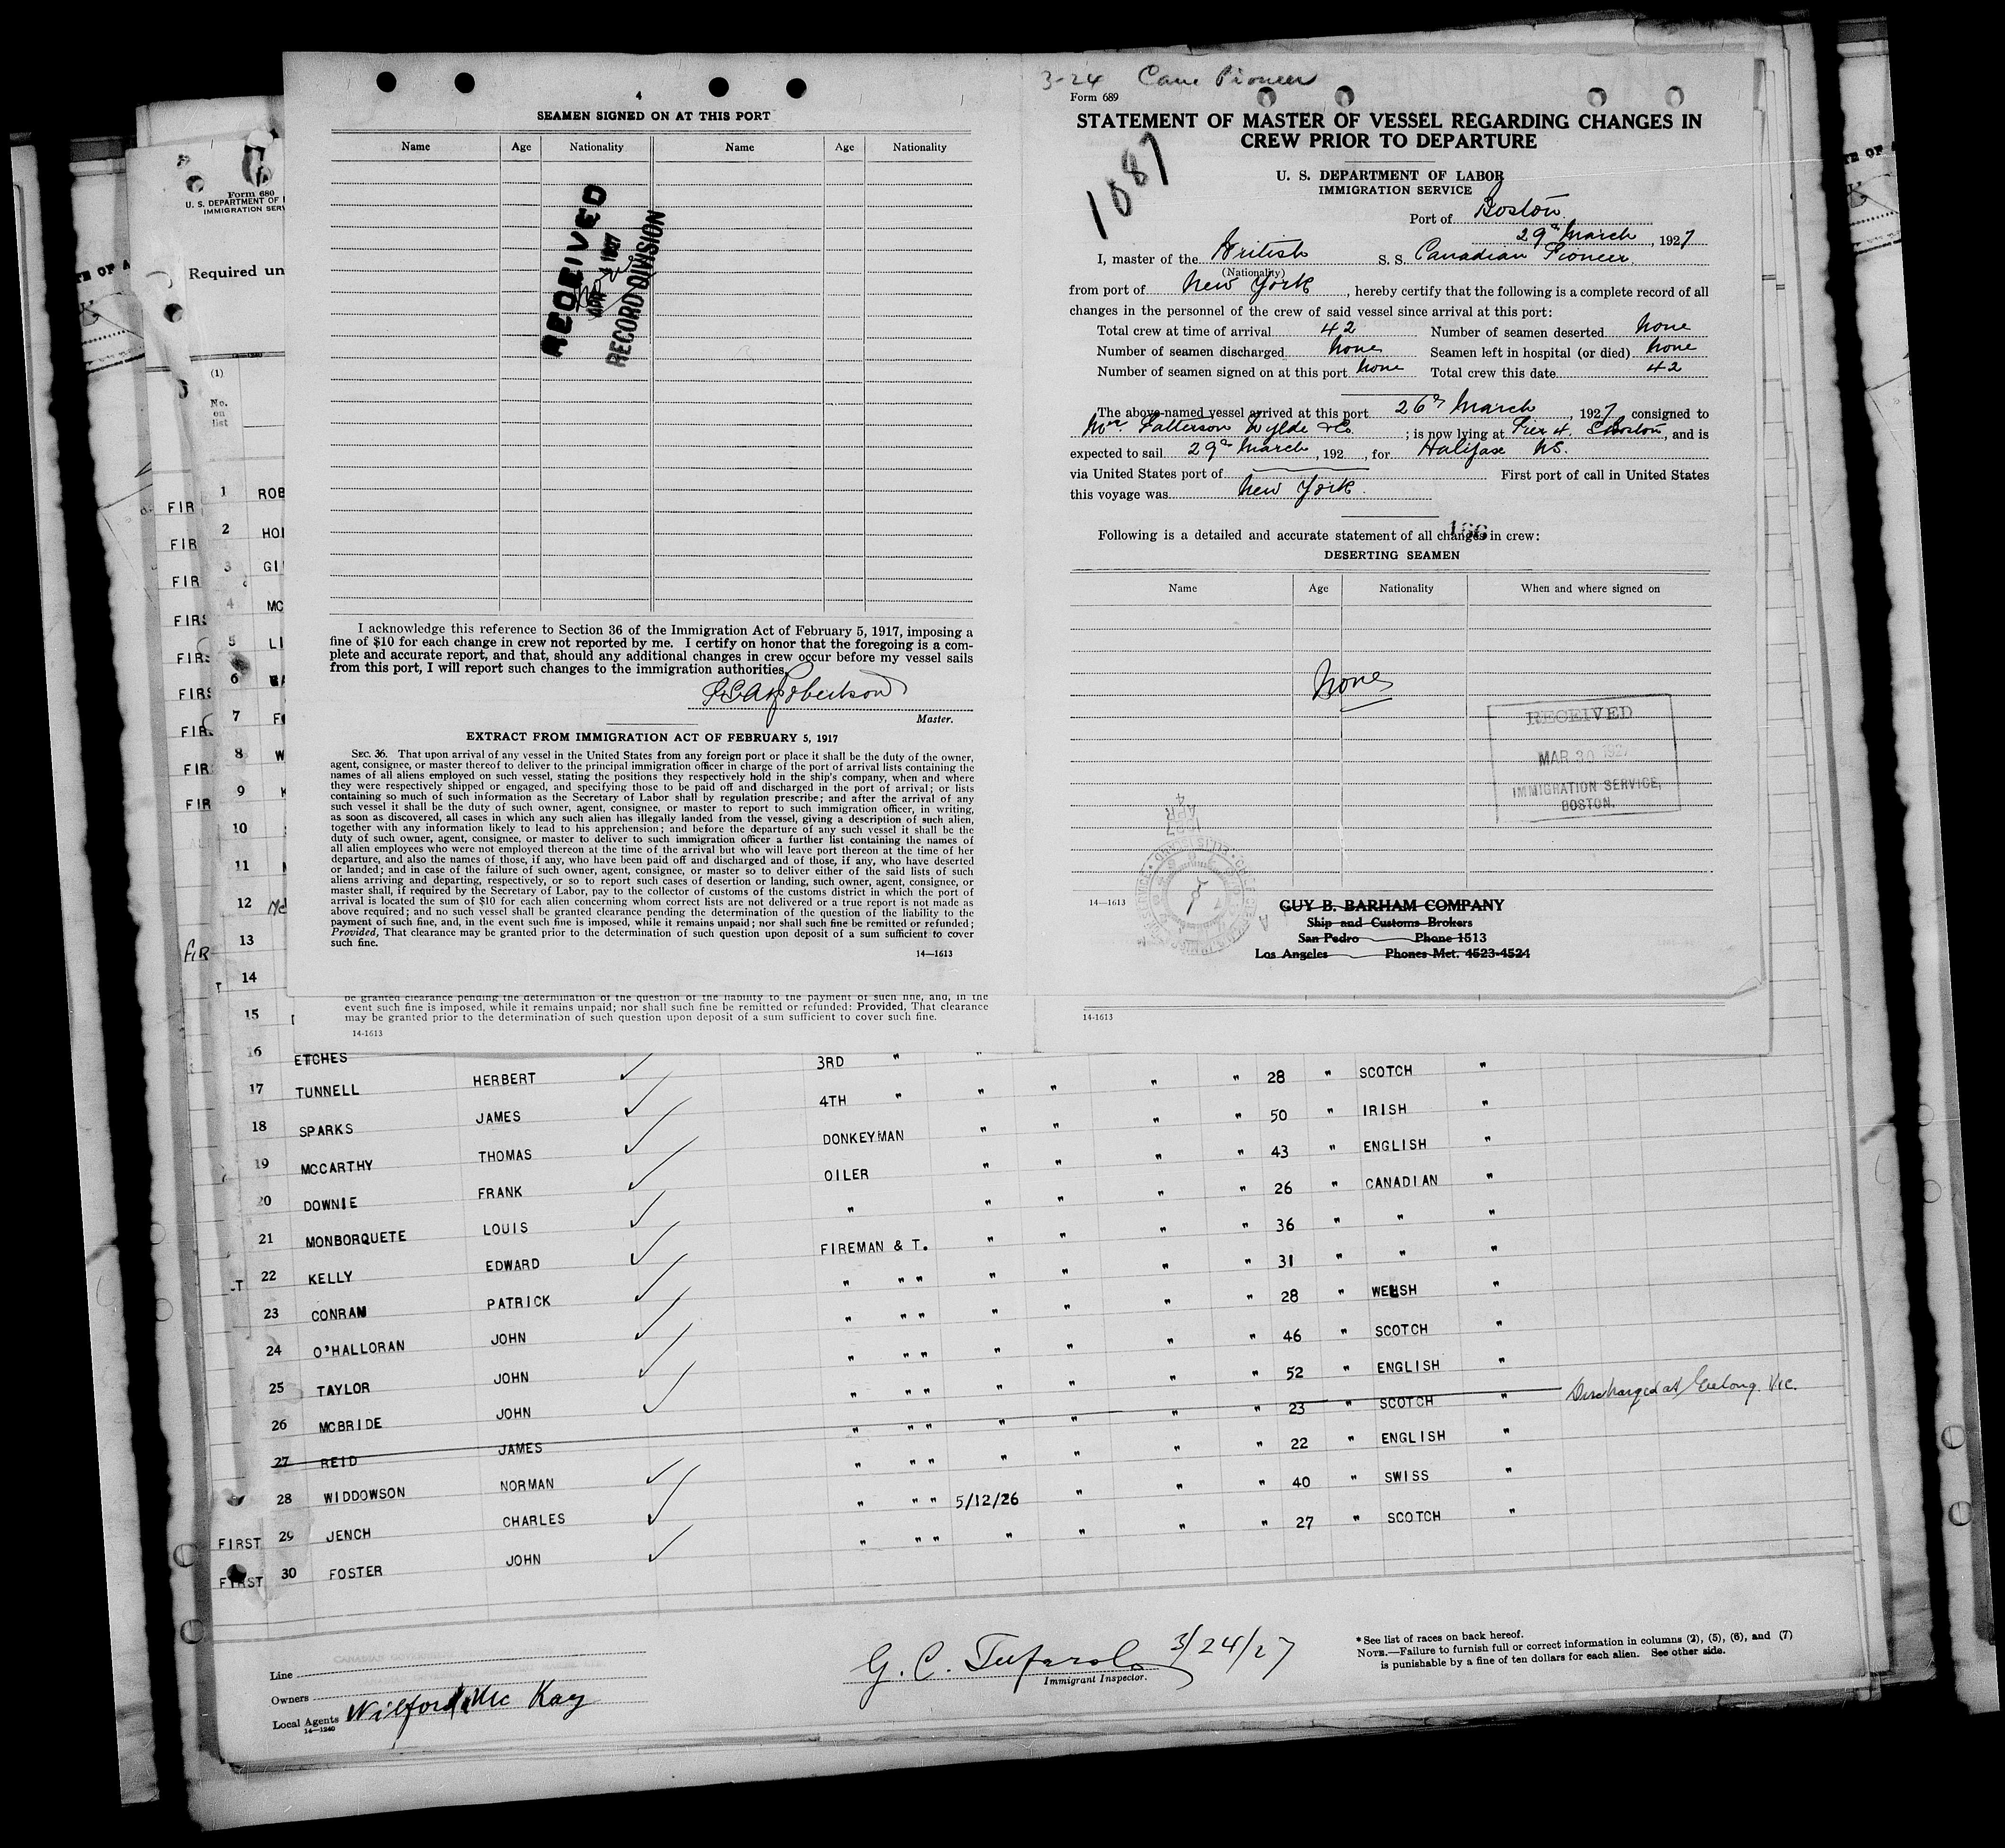 4
SEAMEN SIGNED ON AT THIS PORT
Name Age Nationality Name Age Nationality
RECEIVED
APR 1927
RECORD DIVISION
I acknowledge this reference to Section 36 of the Immigration Act of February 5, 1917, imposing a
fine of $10 for each change in crew not reported by me. I certify on honor that the foregoing is a com-
plete and accurate report, and that, should any additional changes in crew occur before my vessel sails
from this port, I will report such changes to the immigration authorities.
Robertson
Master.
EXTRACT FROM IMMIGRATION ACT OF FEBRUARY 5, 1917
SEC. 36. That upon arrival of any vessel in the United States from any foreign port or place it shall be the duty of the owner,
agent, consignee, or master thereof to deliver to the principal immigration officer in charge of the port of arrival lists containing the
names of all aliens employed on such vessel, stating the positions they respectively hold in the ship's company, when and where
they were respectively shipped or engaged, and specifying those to be paid off and discharged in the port of arrival; or lists
containing so much of such information as the Secretary of Labor shall by regulation prescribe; and after the arrival of any
such vessel it shall be the duty of such owner, agent, consignee, or master to report to such immigration officer, in writing,
as soon as discovered, all cases in which any such alien has illegally landed from the vessel, giving a description of such alien,
together with any information likely to lead to his apprehension; and before the departure of any such vessel it shall be the
duty of such owner, agent, consignee, or master to deliver to such immigration officer a further list containing the names of
all alien employees who were not employed thereon at the time of the arrival but who will leave port thereon at the time of her
departure, and also the names of those, if any, who have been paid off and discharged and of those, if any, who have deserted
or landed; and in case of the failure of such owner, agent, consignee, or master so to deliver either of the said lists of such
aliens arriving and departing, respectively, or so to report such cases of desertion or landing, such owner, agent, consignee, or
master shall, if required by the Secretary of Labor, pay to the collector of customs of the customs district in which the port of
arrival is located the sum of $10 for each alien concerning whom correct lists are not delivered or a true report is not made as
above required; and no such vessel shall be granted clearance pending the determination of the question of the liability to the
payment of such fine, and, in the event such fine is imposed, while it remains unpaid; nor shall such fine be remitted or refunded;
Provided, That clearance may be granted prior to the determination of such question upon deposit of a sum sufficient to cover
such fine.
14—1613
3-24 Can. Pioneer
Form 689
STATEMENT OF MASTER OF VESSEL REGARDING CHANGES IN
CREW PRIOR TO DEPARTURE
1087
U. S. DEPARTMENT OF LABOR
IMMIGRATION SERVICE
Port of Boston
29th March, 1927
I, master of the British S. S. Canadian Pioneer.
(Nationality)
from port of New York, hereby certify that the following is a complete record of all
changes in the personnel of the crew of said vessel since arrival at this port:
Total crew at time of arrival 42 Number of seamen deserted none
Number of seamen discharged none Seamen left in hospital (or died) none
Number of seamen signed on at this port none Total crew this date 42
The above-named vessel arrived at this port 26th March, 1927 consigned to
Patterson Wylde & Co.; is now lying at Pier 4. Boston, and is
expected to sail 29th March, 192 , for Halifax NS.
via United States port of First port of call in United States
this voyage was New York.
166
Following is a detailed and accurate statement of all changes in crew:
DESERTING SEAMEN
Name Age Nationality When and where signed on
none
RECEIVED
MAR 30 1927
IMMIGRATION SERVICE,
BOSTON.
APR 4
1927
14—1613
GUY B. BARHAM COMPANY
Ship and Customs Brokers
San Pedro Phone 1513
Los Angeles Phones Met. 4523-4524
Form 680
U. S. DEPARTMENT OF
IMMIGRATION SERV
Required un
(1)
No.
on
list
1 ROB
FIR
2 HO
FIR
3 GI
FIR
4 MC
FIRS
5 LI
FIRS
6
FIRS
7 F
FIR
8 W
FIR
9 K
FIR
10
11
12
13
FIR
14
15
be granted clearance pending the determination of the question of the liability to the payment of such fine, and, in the
event such fine is imposed, while it remains unpaid; nor shall such fine be remitted or refunded: Provided, That clearance
may be granted prior to the determination of such question upon deposit of a sum sufficient to cover such fine.
14-1613
14-1613
16 ETCHES 3RD "
17 TUNNELL HERBERT 4TH " " " " " 28 " SCOTCH "
18 SPARKS JAMES DONKEYMAN " " " " 50 " IRISH "
19 MCCARTHY THOMAS OILER " " " " 43 " ENGLISH "
20 DOWNIE FRANK " " " " " 26 " CANADIAN "
21 MONBORQUETE LOUIS FIREMAN & T. " " " " 36 " " "
22 KELLY EDWARD " " " " " " " 31 " " "
23 CONRAN PATRICK " " " " " " " 28 " WELSH "
24 O'HALLORAN JOHN " " " " " " " 46 " SCOTCH "
25 TAYLOR JOHN " " " " " " " 52 " ENGLISH "
26 MCBRIDE JOHN " " " " " " " 23 " SCOTCH " Discharged at Geelong. Vic.
27 REID JAMES " " " " " " " 22 " ENGLISH "
28 WIDDOWSON NORMAN " " " 5/12/26 " " " 40 " SWISS "
FIRST 29 JENCH CHARLES " " " " " " " 27 " SCOTCH "
FIRST 30 FOSTER JOHN
Line
Owners
Local Agents Wilford Mc Kay
14—1240
G. C. Tufarolo 3/24/27
Immigrant Inspector.
* See list of races on back hereof.
NOTE.—Failure to furnish full or correct information in columns (2), (5), (6), and (7)
is punishable by a fine of ten dollars for each alien. See other side.